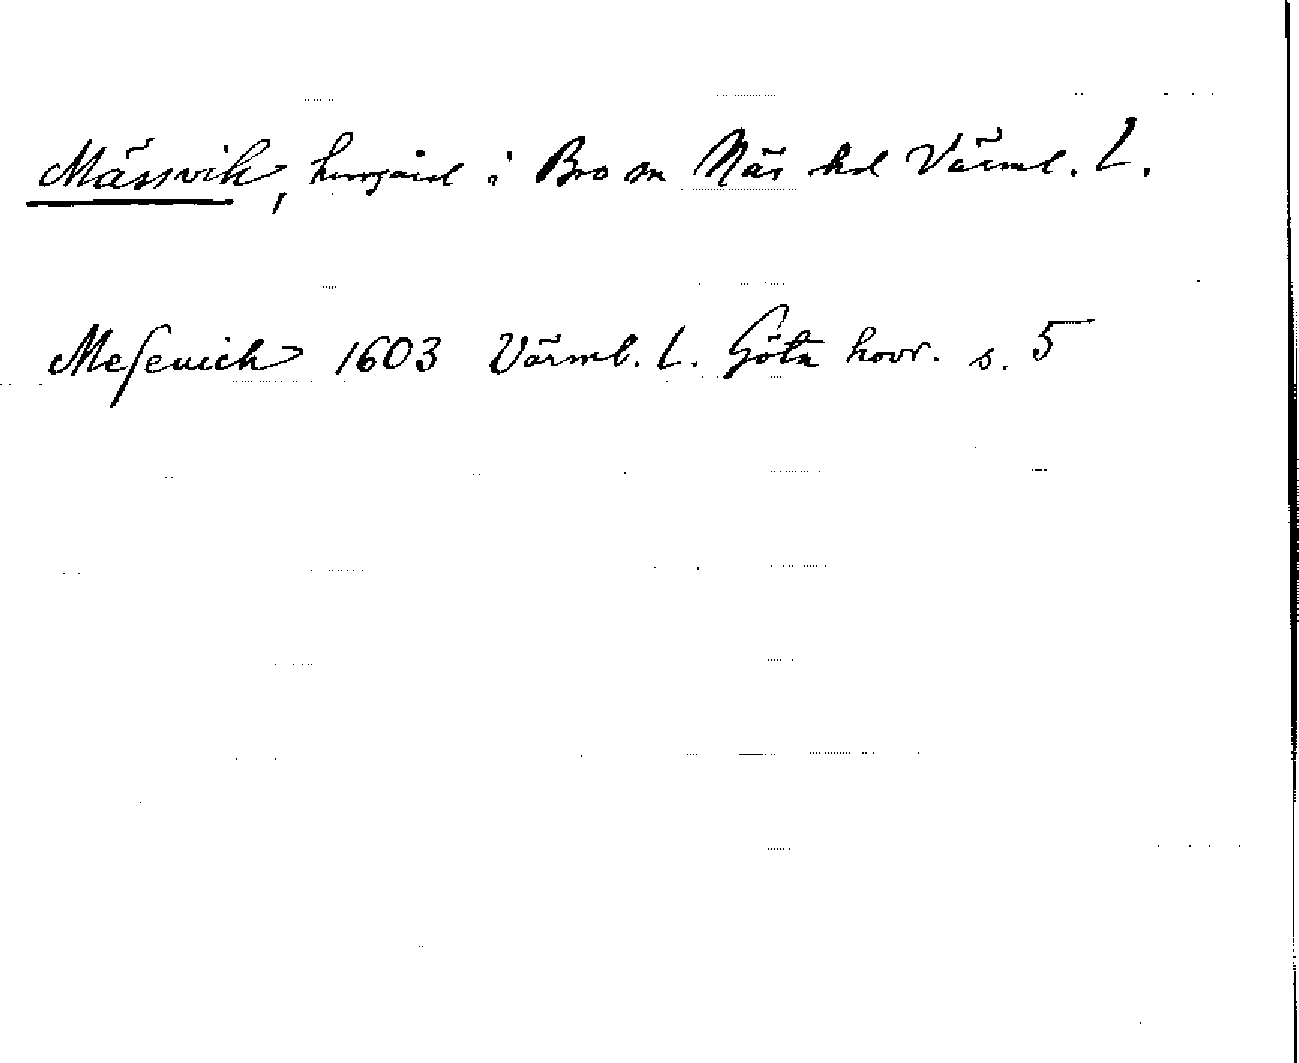 Mässvik, herrgård i Bro sn Näs hd Värml. L.
Meſevich 1603 Värml. L. Göta hovr. s. 5